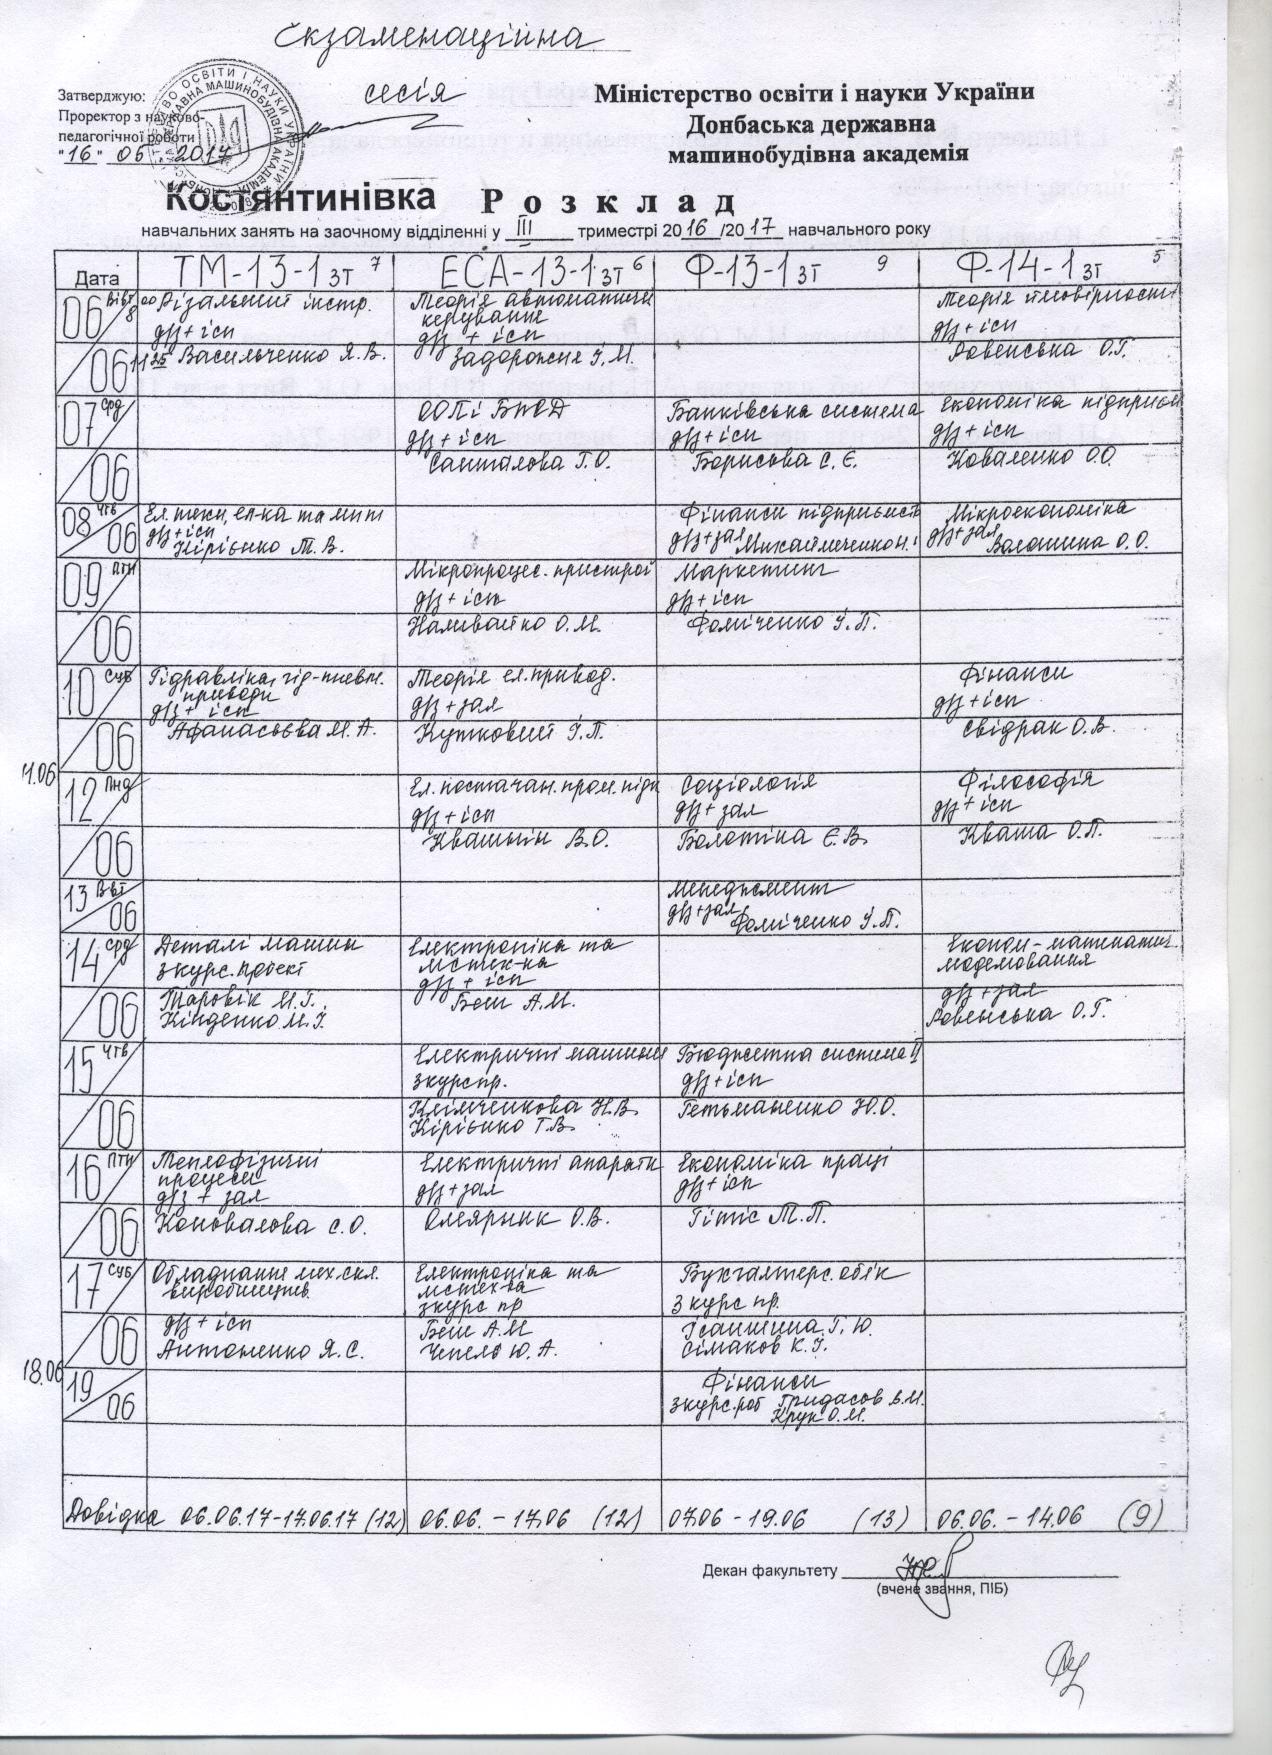 Екзаменаційна
сесія
Затверджую:
Проректор з науково-
педагогічної роботи
"16" 05. 2017
Міністерство освіти і науки України
Донбаська державна
машинобудівна академія
Костянтинівка Розклад
навчальних занять на заочному відділенні у III триместрі 2016/2017 навчального року
Дата ТМ-13-1зт 7 ЕСА-13-1зт 6 Ф-13-1зт 9 Ф-14-1зт 5
06/06 Вівт
8 00 Різальний інстр.
дз + ісп
11 25 Васильченко Я.В.
Теорія автоматичн
керування
дз + ісп
Задорожня І.М.
Теорія ймовірност
дз + ісп
Ровенська О.Г.
07/06 Срд
ООП і БПОД
дз + ісп
Санталова Г.О.
Банківська система
дз + ісп
Борисова С.Є.
Економіка підприєм
дз + ісп
Коваленко О.О.
08/06 Чтв
Ел.техн, ел-ка та мпт
дз + ісп
Кірієнко М.В.
Фінанси підприємств
дз+зал
Мікроекономіка
дз+зал
Волошина О.О.
09/06 Птн
Мікропроцес. пристрої
дз + ісп
Наливайко О.М.
Маркетинг
дз + ісп
Фоміченко І.П.
10/06 Суб
Гідравліка, гід-пневм.
приводи
дз + ісп
Афанасьєва М.А.
Теорія ел.привод.
дз + зал
Кутковий І.П.
Фінанси
дз + ісп
Свідрак О.В.
12/06 Пнд
Ел.постачан.пром.підп
дз + ісп
Квашнін В.О.
Соціологія
дз + зал
Болотіна Є.В.
Філософія
дз + ісп
Кваша О.П.
13/06 Вівт
Менеджмент
дз+зал
Фоміченко І.П.
14/06 Срд
Деталі машин
з курс.проект
Таровік М.Г.
Електроніка та
мстех-ка
дз + ісп
Беш А.М.
Економ-математич.
моделювання
дз + зал
Ровенська О.Г.
15/06 Чтв
Електричні машини
з курс пр.
Клімченкова Н.В.
Кірієнко Т.В.
Бюджетна система II
дз + ісп
Гетьманенко Ю.О.
16/06 Птн
Теплофізичні
процеси
дз + зал
Коновалова С.О.
Електричні апарати
дз+зал
Олеярник О.В.
Економіка праці
дз + ісп
Гітіс Т.П.
17/06 Суб
Обладнання мех.скл.
виробництв.
дз + ісп
Антоненко Я.С.
Електроніка та
мстех-ка
з курс пр
Беш А.М
Чепель Ю.А.
Бухгалтерс.облік
з курс пр.
Ісаншина Г.Ю.
Сімаков К.І.
18.06
19/06
Фінанси
з курс.роб Гридасов В.М.
Крук О.М.
Довідка 06.06.17-17.06.17 (12) 06.06. - 17.06 (12) 07.06 - 19.06 (13) 06.06. - 14.06 (9)
Декан факультету
(вчене звання, ПІБ)